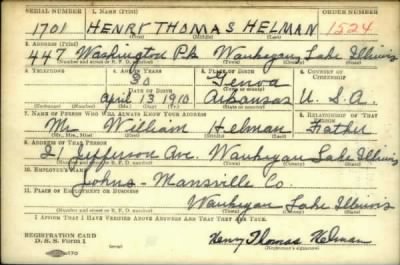 SERIAL NUMBER 1. NAME (Print) ORDER NUMBER
1701 HENRY THOMAS HELMAN 1524
(First) (Middle) (Last)
2. ADDRESS (Print)
447 Washington Pk Waukegan Lake Illinois
(Number and street or R. F. D. number) (Town) (County) (State)
3. TELEPHONE 4. AGE IN YEARS 5. PLACE OF BIRTH 6. COUNTRY OF CITIZENSHIP
30 Genoa
DATE OF BIRTH (Town or county)
April 13 1910 Arkansas U. S. A.
(Exchange) (Number) (Mo.) (Day) (Yr.) (State or country)
7. NAME OF PERSON WHO WILL ALWAYS KNOW YOUR ADDRESS RELATIONSHIP OF THAT PERSON
Mr. William Helman Father
(Mr., Mrs., Miss) (First) (Middle) (Last)
9. ADDRESS OF THAT PERSON
21 Jefferson Ave. Waukegan Lake Illinois
(Number and street or R. F. D. number) (Town) (County) (State)
10. EMPLOYER'S NAME
Johns-Mansville Co.
11. PLACE OF EMPLOYMENT OR BUSINESS
Waukegan Lake Illinois
(Number and street or R. F. D. number) (Town) (County) (State)
I AFFIRM THAT I HAVE VERIFIED ABOVE ANSWERS AND THAT THEY ARE TRUE.
REGISTRATION CARD
D. S. S. Form 1 Henry Thomas Helman
(Registrant's signature)